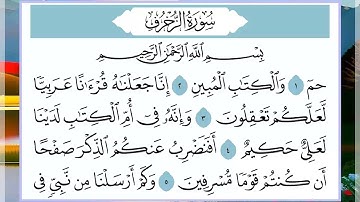 سُورَةُ الزُّخْرُفِ
بِسْمِ ٱللَّهِ ٱلرَّحْمَٰنِ ٱلرَّحِيمِ
حمٓ ١ وَٱلْكِتَٰبِ ٱلْمُبِينِ ٢ إِنَّا جَعَلْنَٰهُ قُرْءَٰنًا عَرَبِيًّا
لَّعَلَّكُمْ تَعْقِلُونَ ٣ وَإِنَّهُۥ فِىٓ أُمِّ ٱلْكِتَٰبِ لَدَيْنَا
لَعَلِىٌّ حَكِيمٌ ٤ أَفَنَضْرِبُ عَنكُمُ ٱلذِّكْرَ صَفْحًا
أَن كُنتُمْ قَوْمًا مُّسْرِفِينَ ٥ وَكَمْ أَرْسَلْنَا مِن نَّبِىٍّ فِى